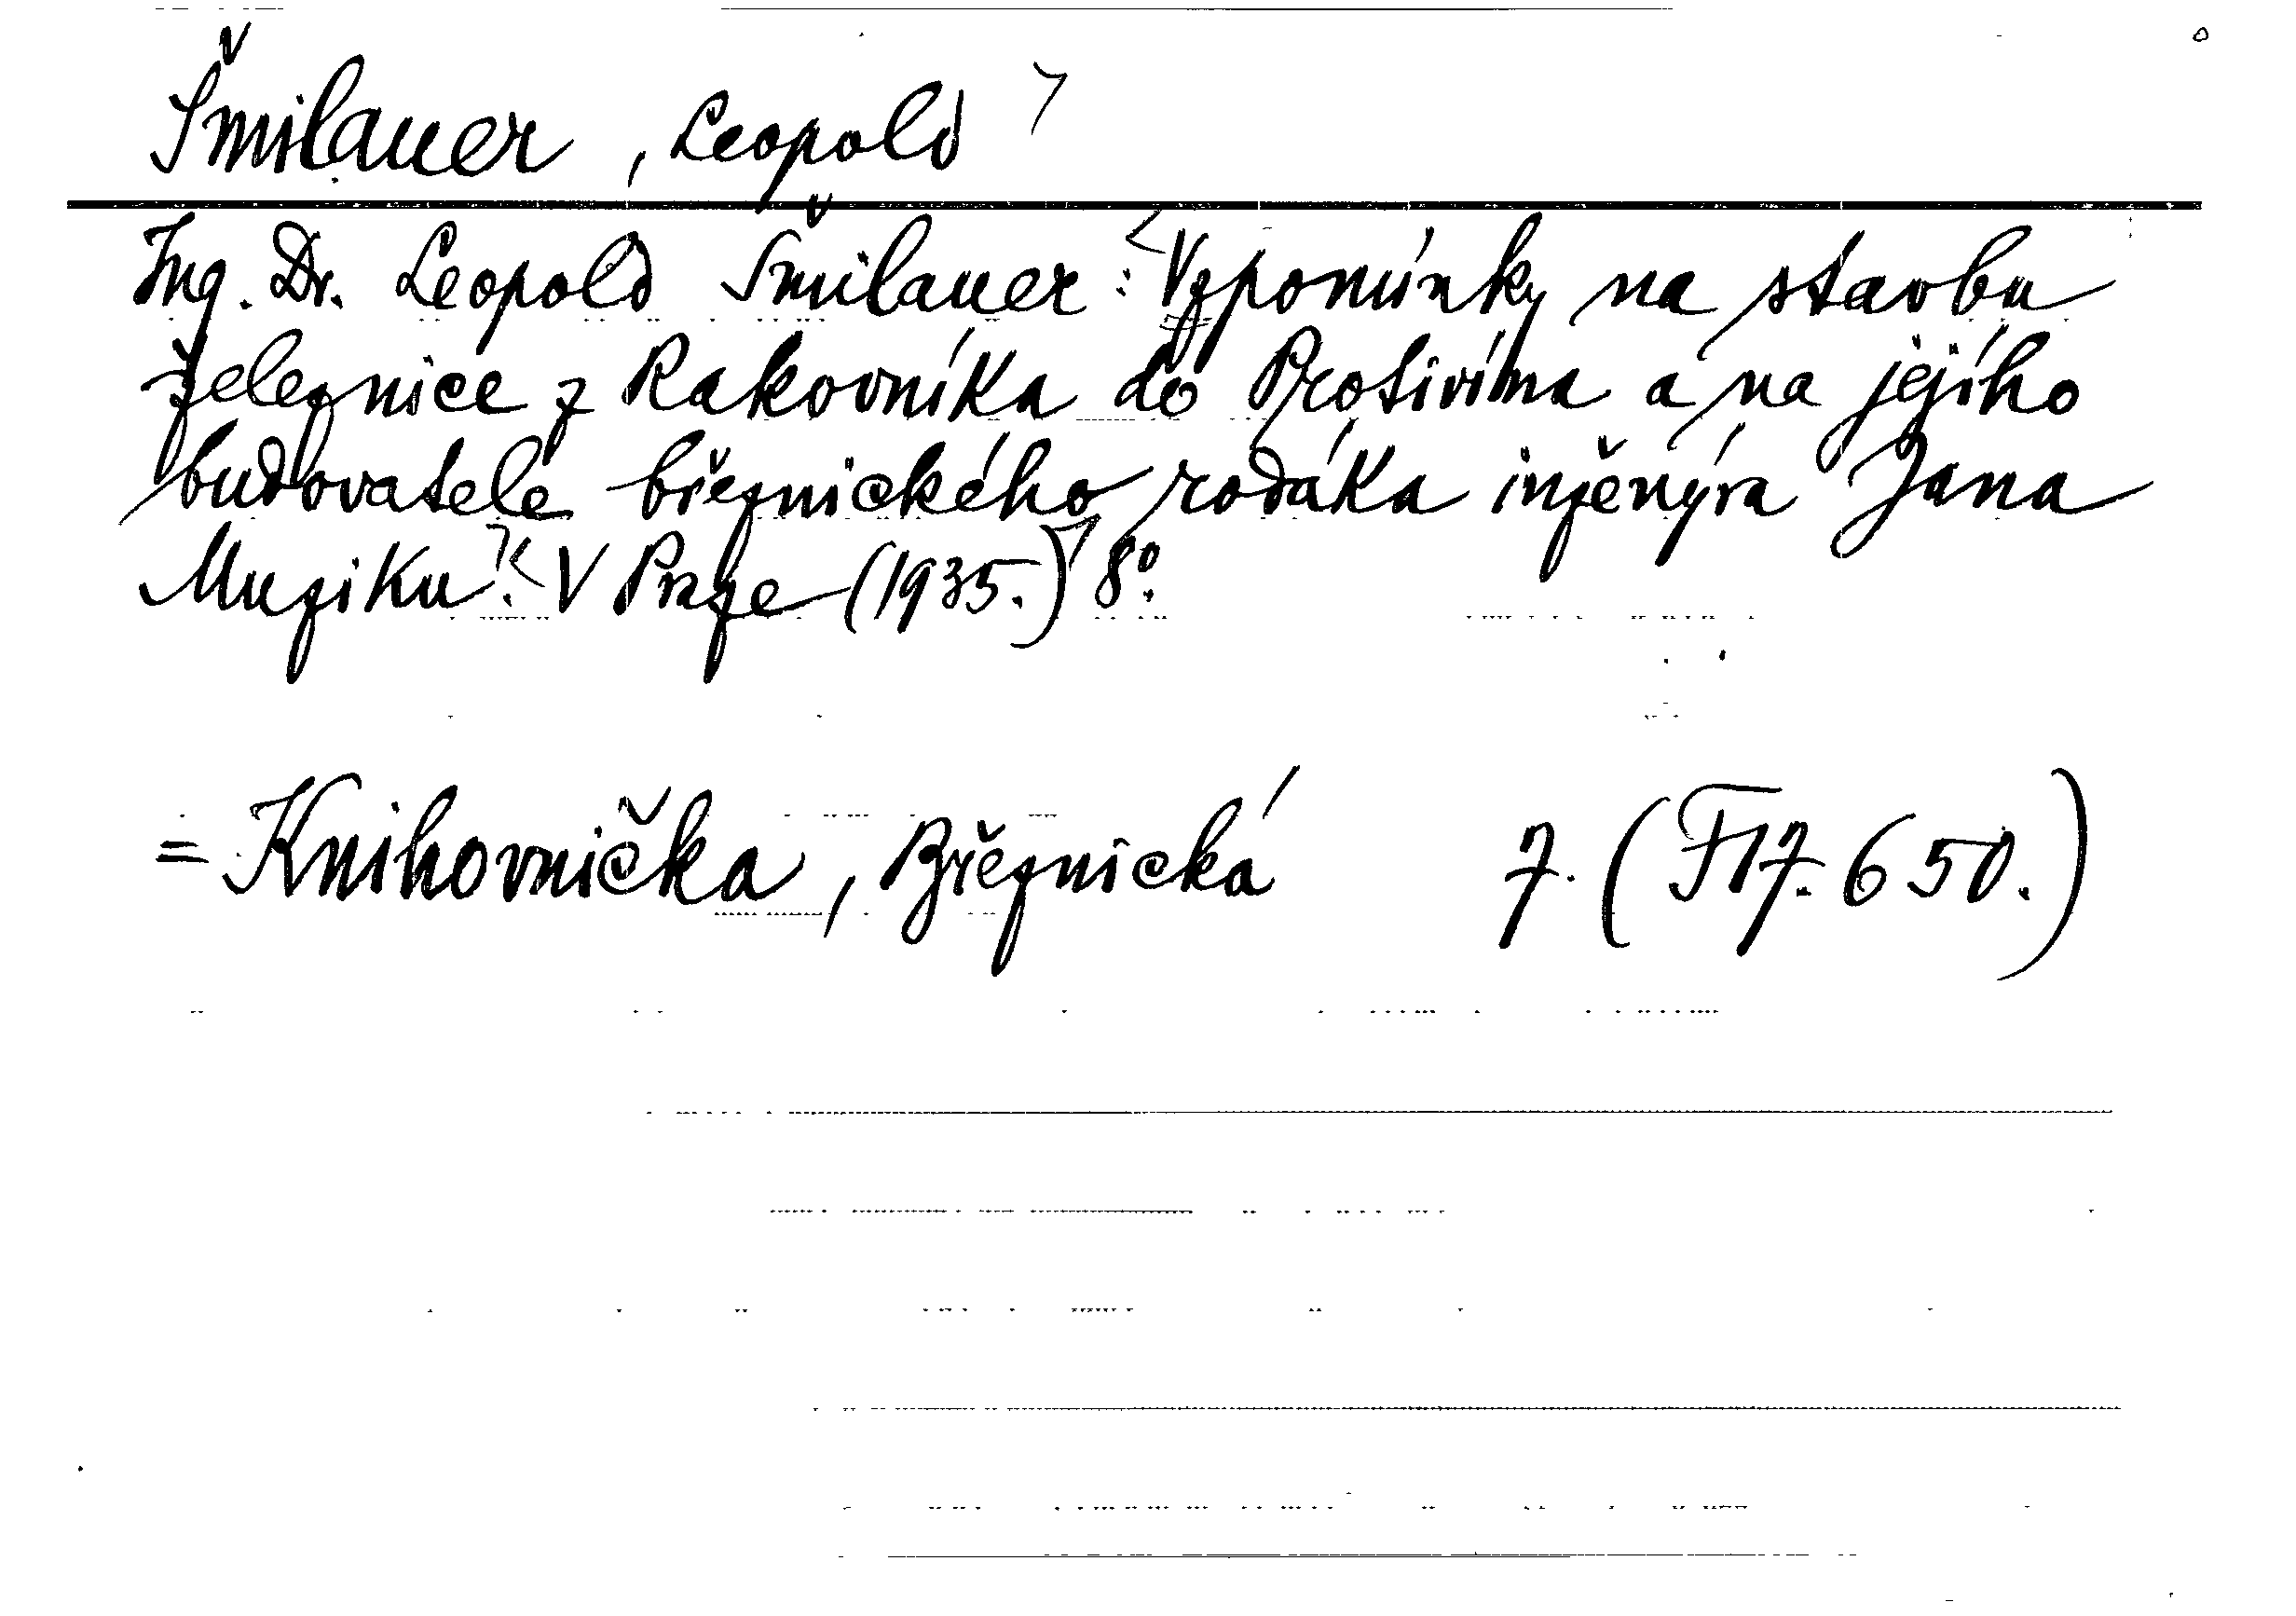 Šmilauer, Leopold
Ing. Dr. Leopold Šmilauer: Vzpomínky na stavbu
železnice z Rakovníka do Protivína a na jejího
budovatele březnického rodáka inženýra Jana
Muziku. V Praze (1935.) 8°.
= Knihovnička, Březnická 7. (F 17.650.)